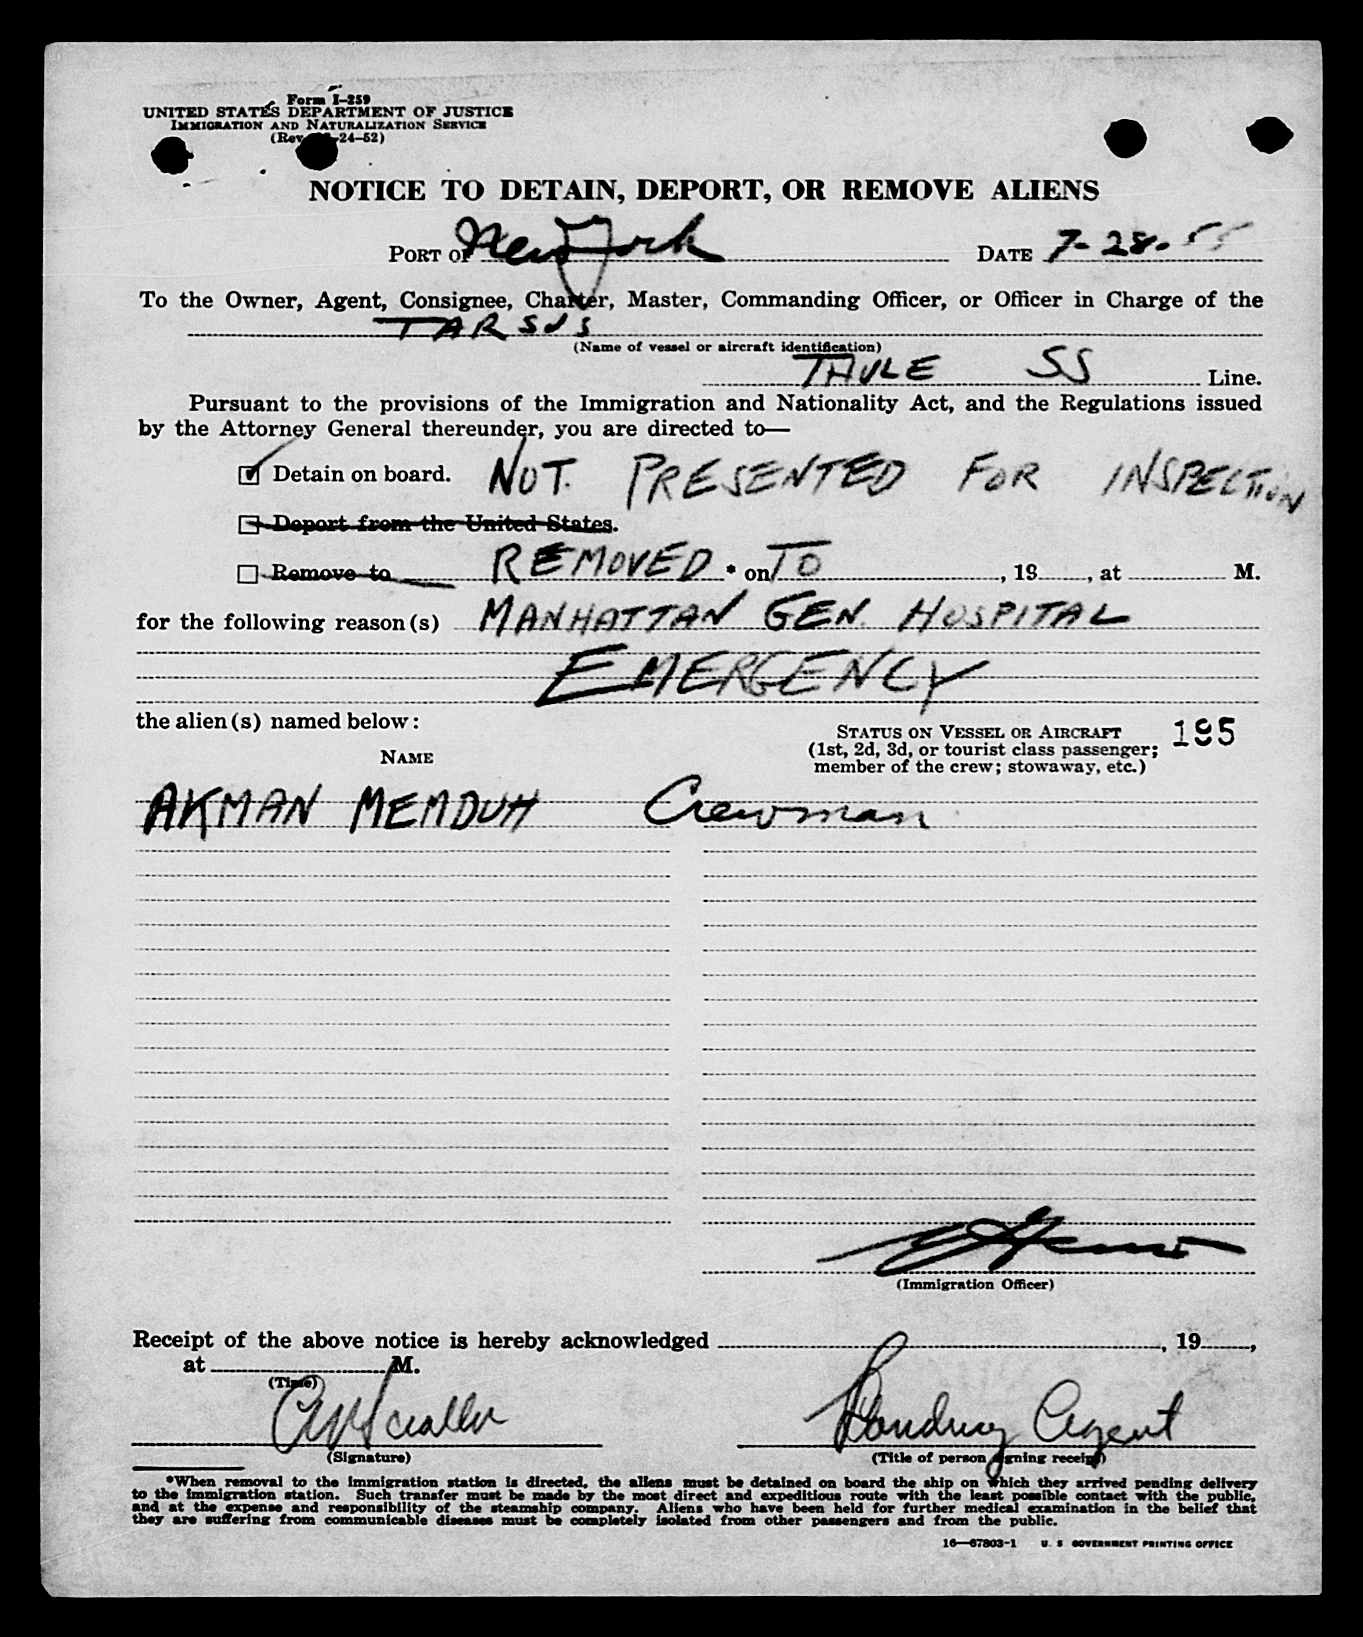 Form I-259
UNITED STATES DEPARTMENT OF JUSTICE
IMMIGRATION AND NATURALIZATION SERVICE
(Rev. 24-52)
NOTICE TO DETAIN, DEPORT, OR REMOVE ALIENS
PORT OF New York DATE 7-28-55
To the Owner, Agent, Consignee, Charter, Master, Commanding Officer, or Officer in Charge of the
TARSUS
(Name of vessel or aircraft identification)
THULE SS Line.
Pursuant to the provisions of the Immigration and Nationality Act, and the Regulations issued
by the Attorney General thereunder, you are directed to—
☑ Detain on board. NOT. PRESENTED FOR INSPECTION
☐ Deport from the United States.
☐ Remove to REMOVED * on TO , 19 , at M.
for the following reason(s) MANHATTAN GEN. HOSPITAL
EMERGENCY
the alien(s) named below:
STATUS ON VESSEL OR AIRCRAFT 195
NAME (1st, 2d, 3d, or tourist class passenger;
member of the crew; stowaway, etc.)
AKMAN MEMDUH Crewman
(Immigration Officer)
Receipt of the above notice is hereby acknowledged , 19 ,
at M.
(Time)
Boarding Agent
(Signature) (Title of person signing receipt)
*When removal to the immigration station is directed, the aliens must be detained on board the ship on which they arrived pending delivery
to the immigration station. Such transfer must be made by the most direct and expeditious route with the least possible contact with the public,
and at the expense and responsibility of the steamship company. Aliens who have been held for further medical examination in the belief that
they are suffering from communicable diseases must be completely isolated from other passengers and from the public.
16—67803-1 U. S. GOVERNMENT PRINTING OFFICE